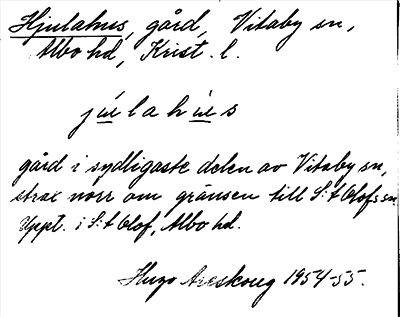 Hjulahus, gård, Vitaby sn,
Albo hd, Krist. l.
júlahús
gård i sydligaste delen av Vitaby sn,
strax norr om gränsen till S:t Olofs sn.
Uppt. i S:t Olof, Albo hd.
Hugo Areskoug 1954-55.